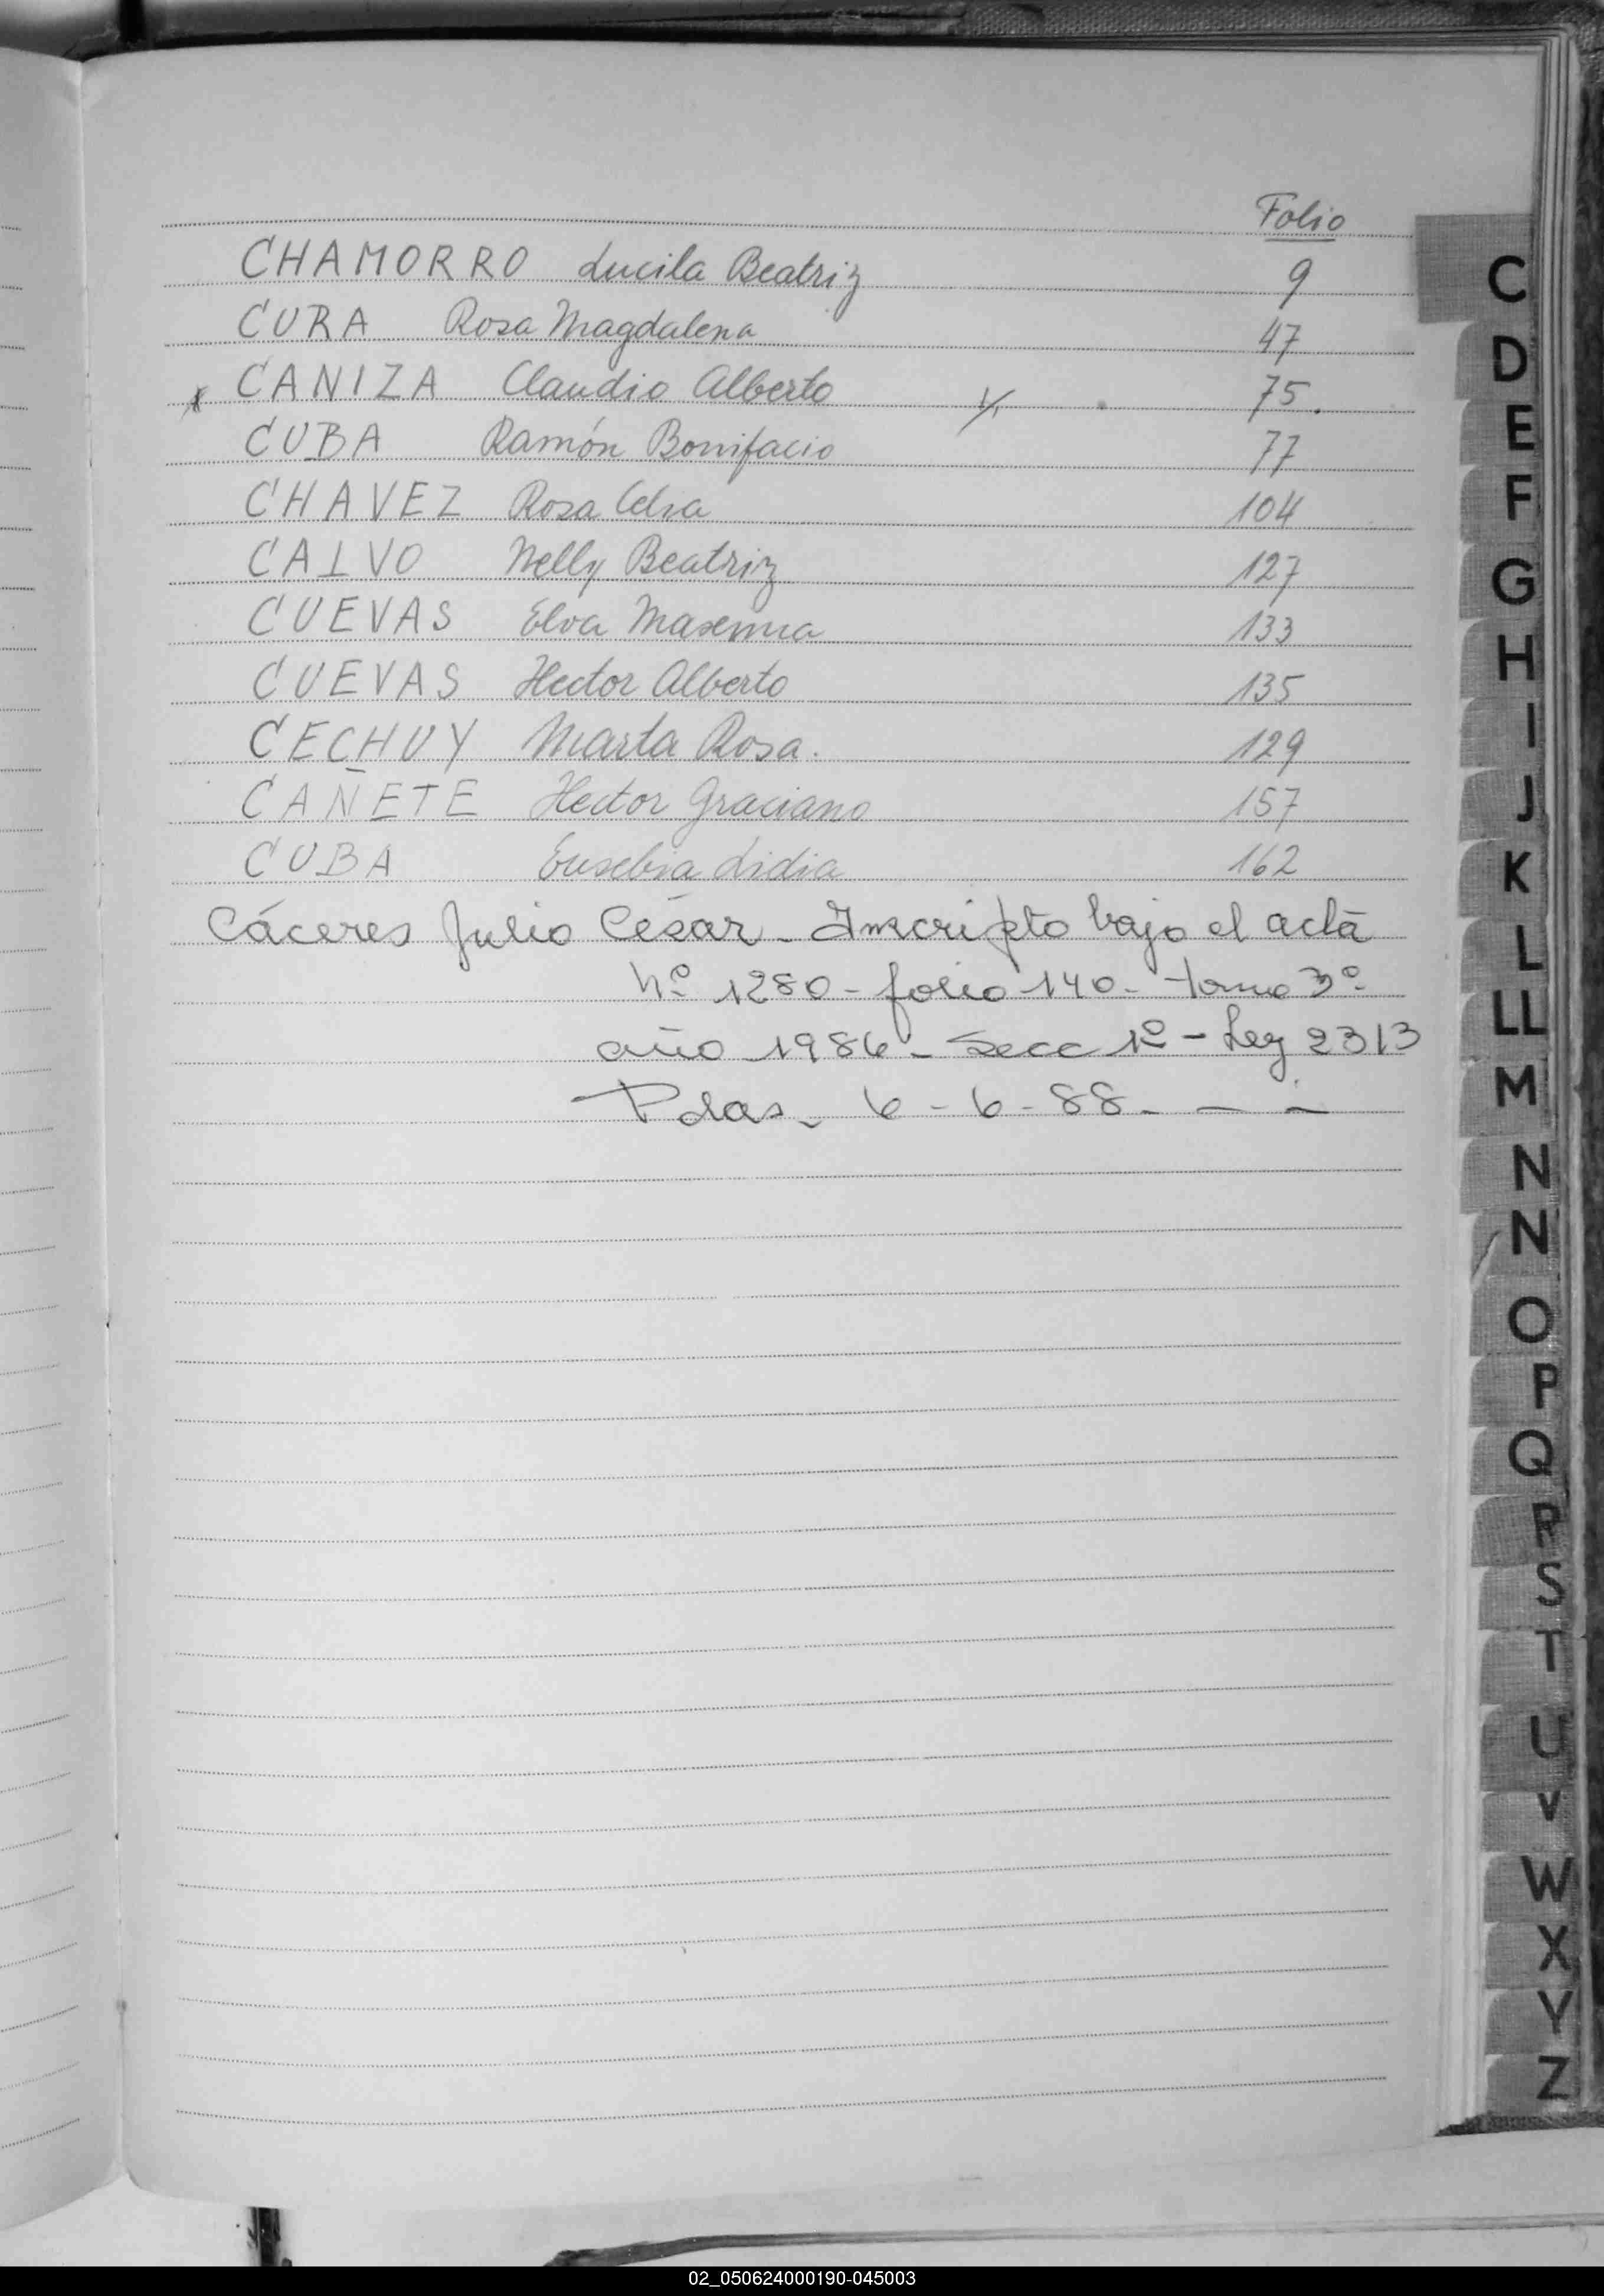 Folio
CHAMORRO Lucila Beatriz 9
CURA Rosa Magdalena 47
x CANIZA Claudio Alberto 75.
CUBA Ramón Bonifacio 77
CHAVEZ Rosa Celia 104
CALVO Nelly Beatriz 127
CUEVAS Elva 133
CUEVAS Hector Alberto 135
CECHUY Marta Rosa. 129
CAÑETE Hector Graciano 157
CUBA Eusebia Lidia 162
Cáceres Julio César - Inscripto bajo el acta
Nº 1280 - folio 140 - tomo 3º
año 1986 - Secc 1º - Ley 2313
Pdas - 6 - 6 - 88 - - -
C
D
E
F
G
H
I
J
K
L
LL
M
N
N
O
P
Q
R
S
T
U
V
W
X
Y
Z
02_050624000190-045003